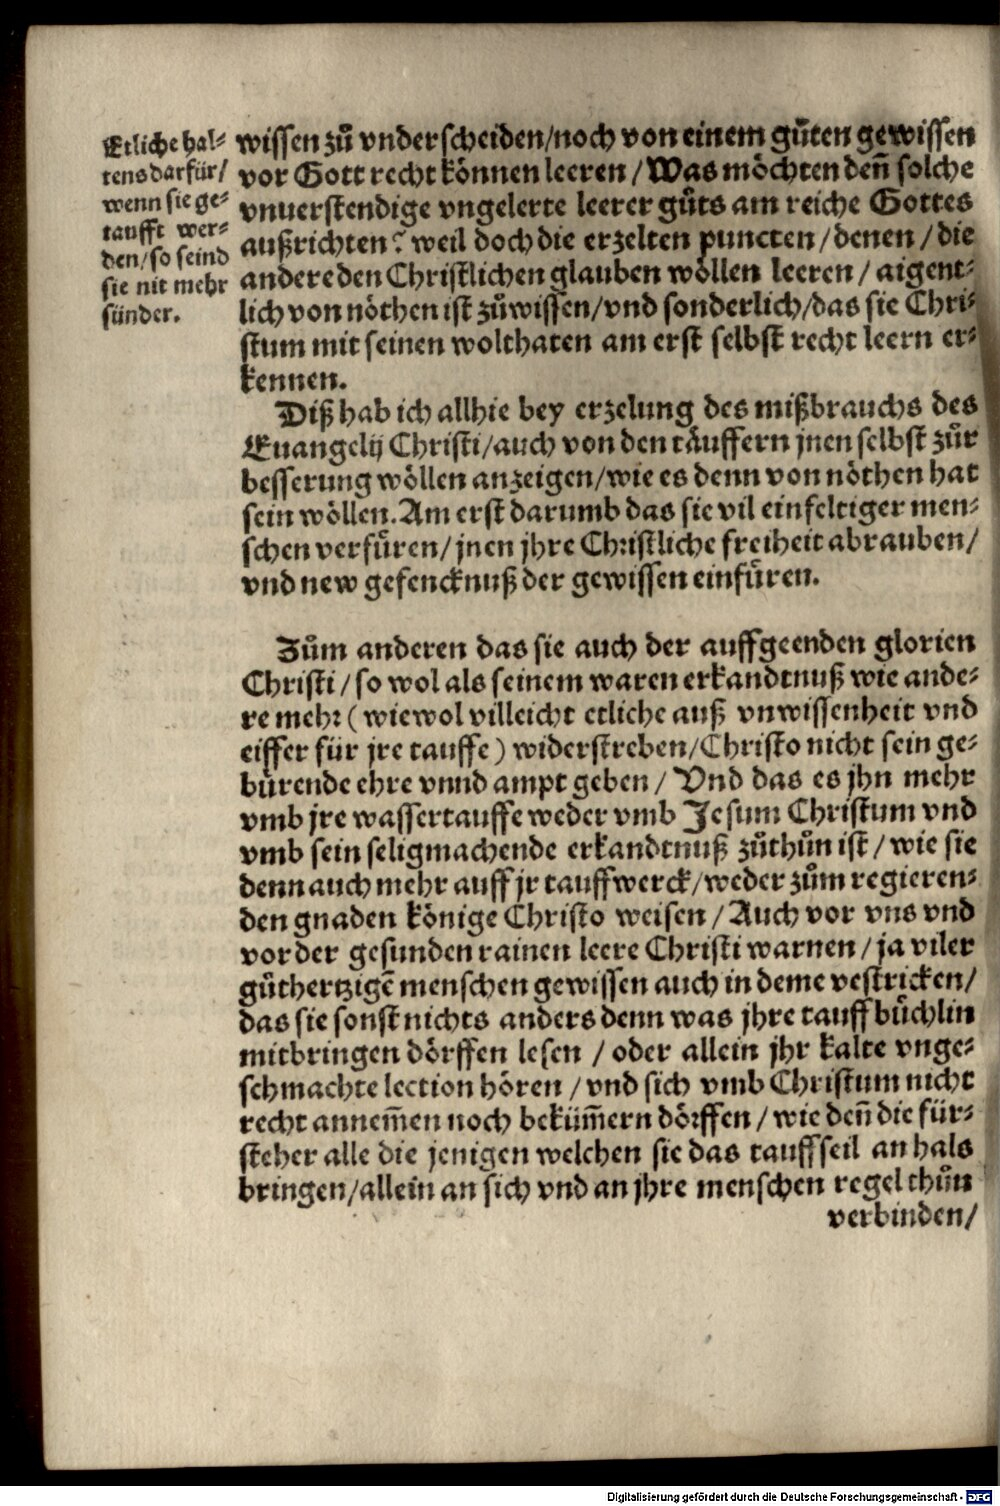 Etliche hal⸗
tens darfür/
wenn sie ge⸗
taufft wer⸗
den/so seind
sie nit mehr
sünder.
wissen zů vnderscheiden/noch von einem gůten gewissen
vor Gott recht können leeren/Was möchten deñ solche
vnuerstendige vngelerte leerer gůts am reiche Gottes
außrichten? weil doch die erzelten puncten/denen/die
andere den Christlichen glauben wöllen leeren/aigent⸗
lich von nöthen ist zůwissen/vnd sonderlich/das sie Chri⸗
stum mit seinen wolthaten am erst selbst recht leern er⸗
kennen.
Diß hab ich allhie bey erzelung des mißbrauchs des
Euangelij Christi/auch von den täuffern jnen selbst zůr
besserung wöllen anzeigen/wie es denn von nöthen hat
sein wöllen. Am erst darumb das sie vil einfeltiger men⸗
schen verfüren/jnen jhre Christliche freiheit abrauben/
vnd new gefencknuß der gewissen einfüren.
Zům anderen das sie auch der auffgeenden glorien
Christi/so wol als seinem waren erkandtnuß wie ande⸗
re mehr (wiewol villeicht etliche auß vnwissenheit vnd
eiffer für jre tauffe) widerstreben/Christo nicht sein ge⸗
bürende ehre vnnd ampt geben/Vnd das es jhn mehr
vmb jre wassertauffe weder vmb Jesum Christum vnd
vmb sein seligmachende erkandtnuß zůthůn ist/wie sie
denn auch mehr auff jr tauffwerck/weder zům regieren⸗
den gnaden könige Christo weisen/Auch vor vns vnd
vor der gesunden rainen leere Christi warnen/ja viler
gůthertzigẽ menschen gewissen auch in deme vestricken/
das sie sonst nichts anders denn was jhre tauffbüchlin
mitbringen dörffen lesen/oder allein jhr kalte vnge⸗
schmachte lection hören/vnd sich vmb Christum nicht
recht annem̃en noch beküm̃ern dörffen/wie deñ die für⸗
steher alle die jenigen welchen sie das tauffseil an hals
bringen/allein an sich vnd an jhre menschen regel thůn
verbinden/
Digitalisierung gefördert durch die Deutsche Forschungsgemeinschaft - DFG